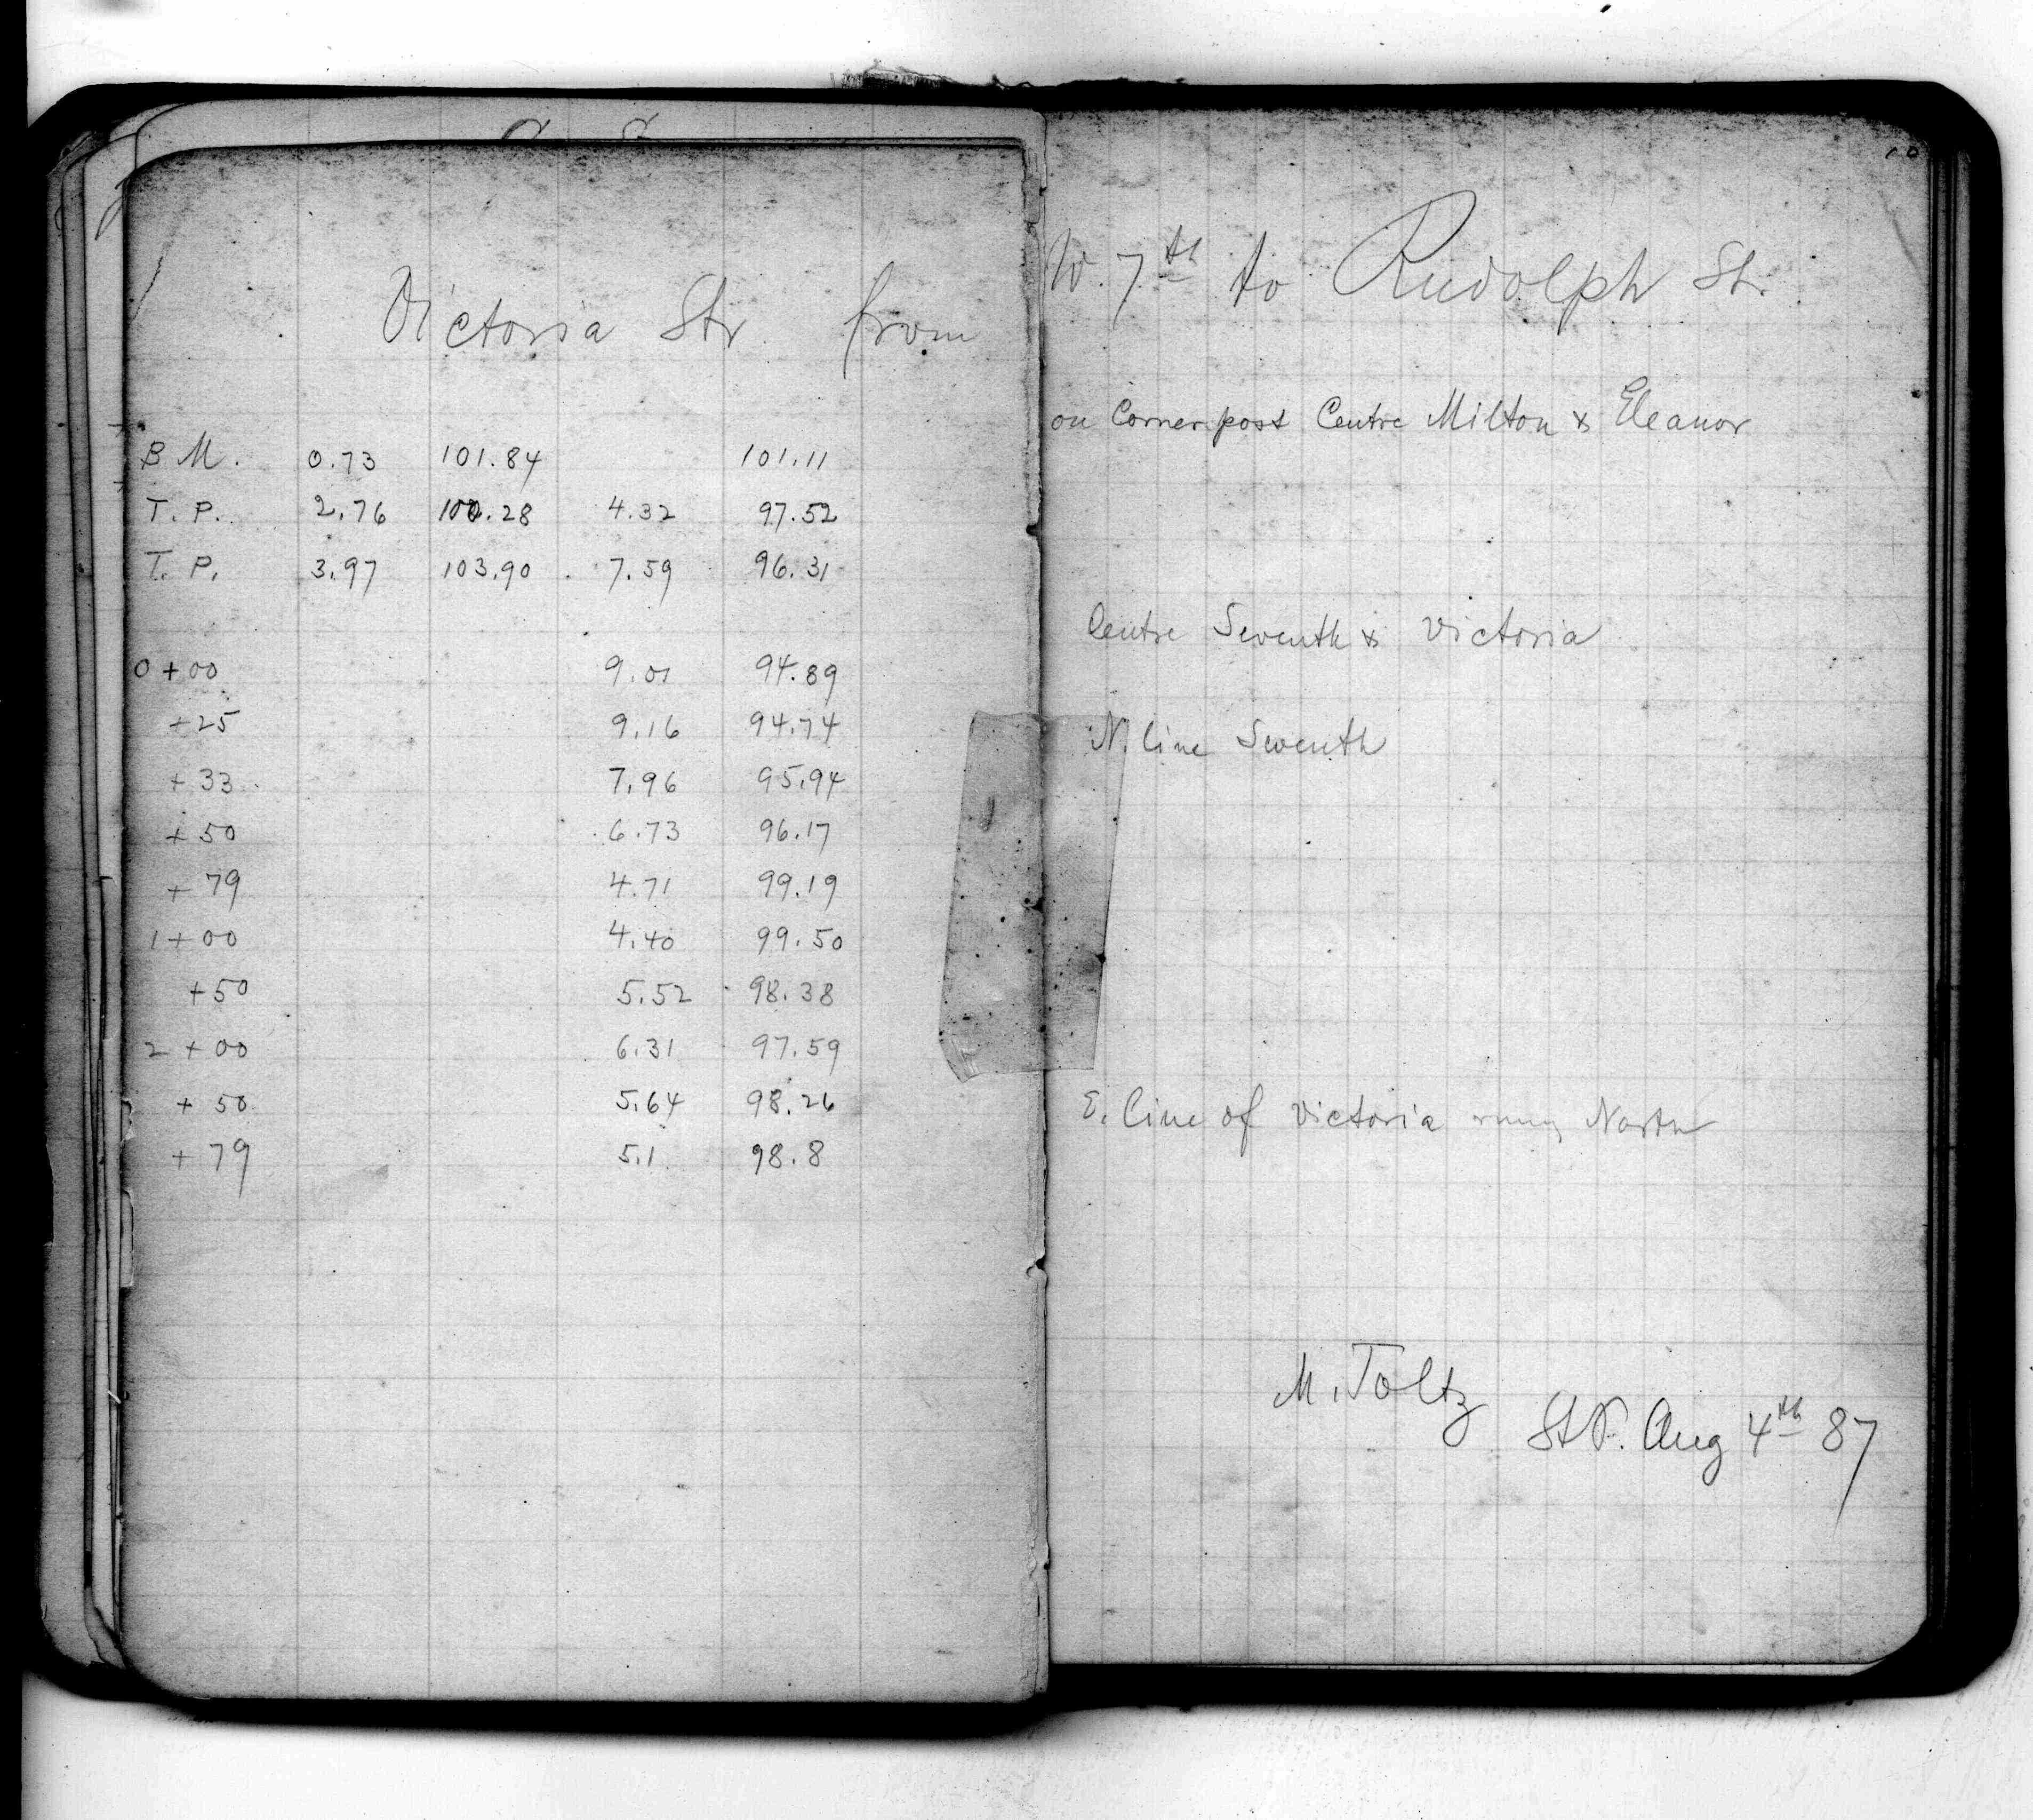 10
Victoria Str from
W. 7th to Rudolph St.
on Corner post Centre Milton & Eleanor
B M. 0.73 101.84 101.11
T. P. 2.76 100.28 4.32 97.52
T. P. 3.97 103.90 7.59 96.31
Centre Seventh & Victoria
0+00 9.01 94.89
+25 9.16 94.74
N. line Seventh
+33 7.96 95.94
+50 6.73 96.17
+79 4.71 99.19
1+00 4.40 99.50
+50 5.52 98.38
2+00 6.31 97.59
+50 5.64 98.26
E. line of Victoria North
+79 5.1 98.8
M. Toltz
St P. Aug 4th 87